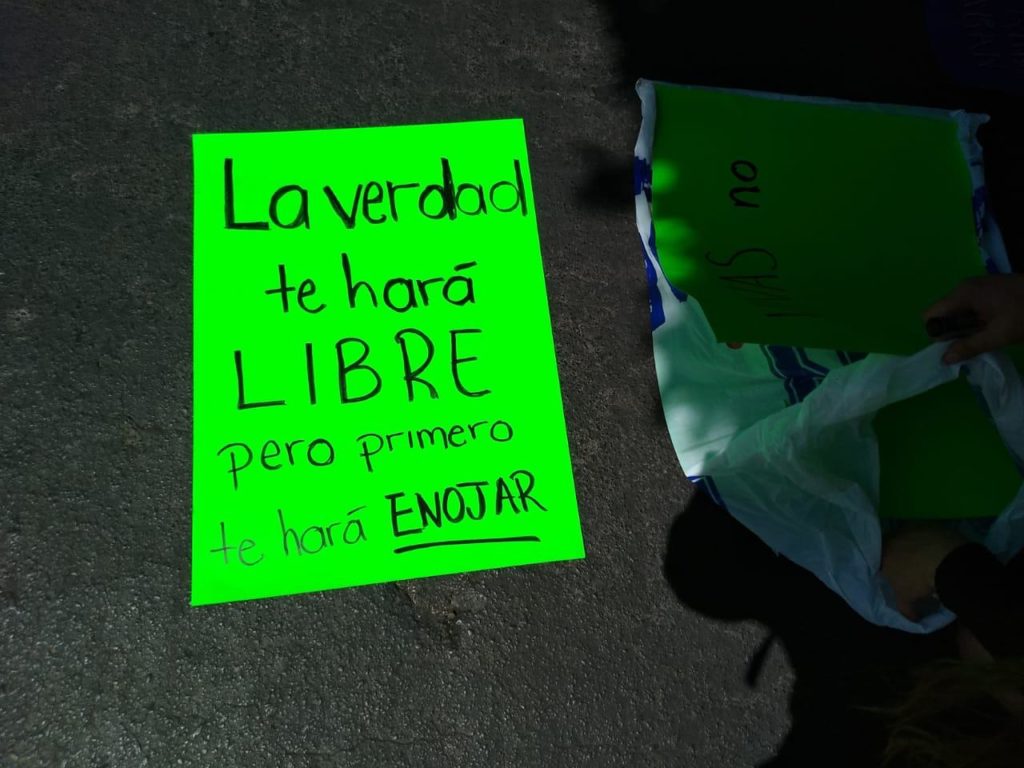 La verdad
te hará
LIBRE
pero primero
te hará ENOJAR
no
MAS